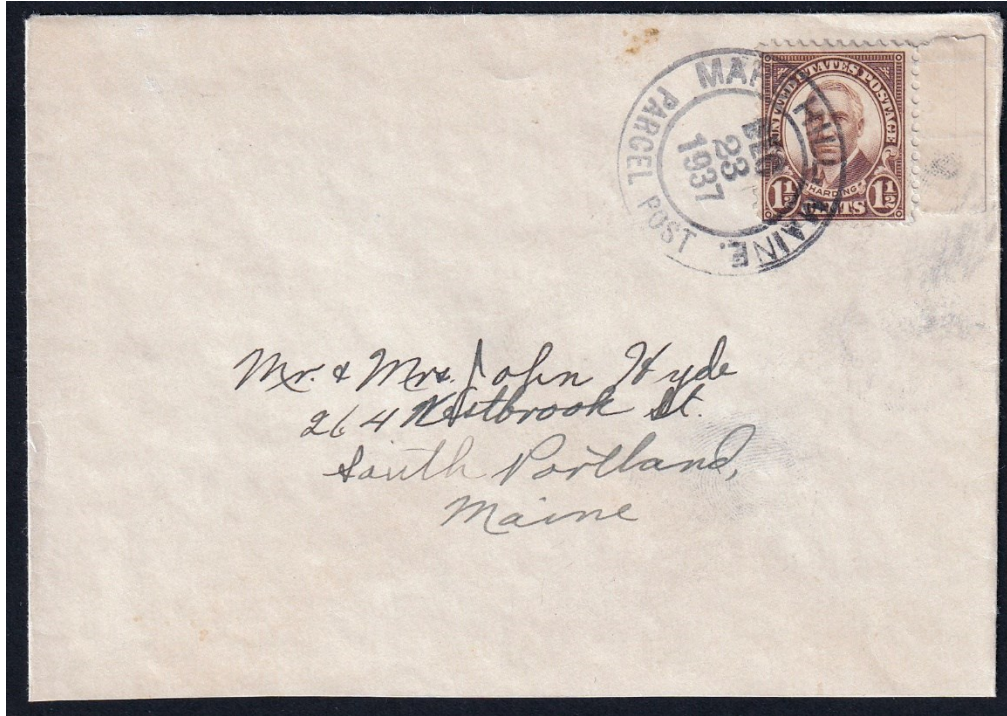 MAINE.
PARCEL POST
DEC
23
1937
UNITED STATES POSTAGE
HARDING
1½ CENTS 1½
Mr. & Mrs. John Hyde
264 Westbrook St.
South Portland,
Maine